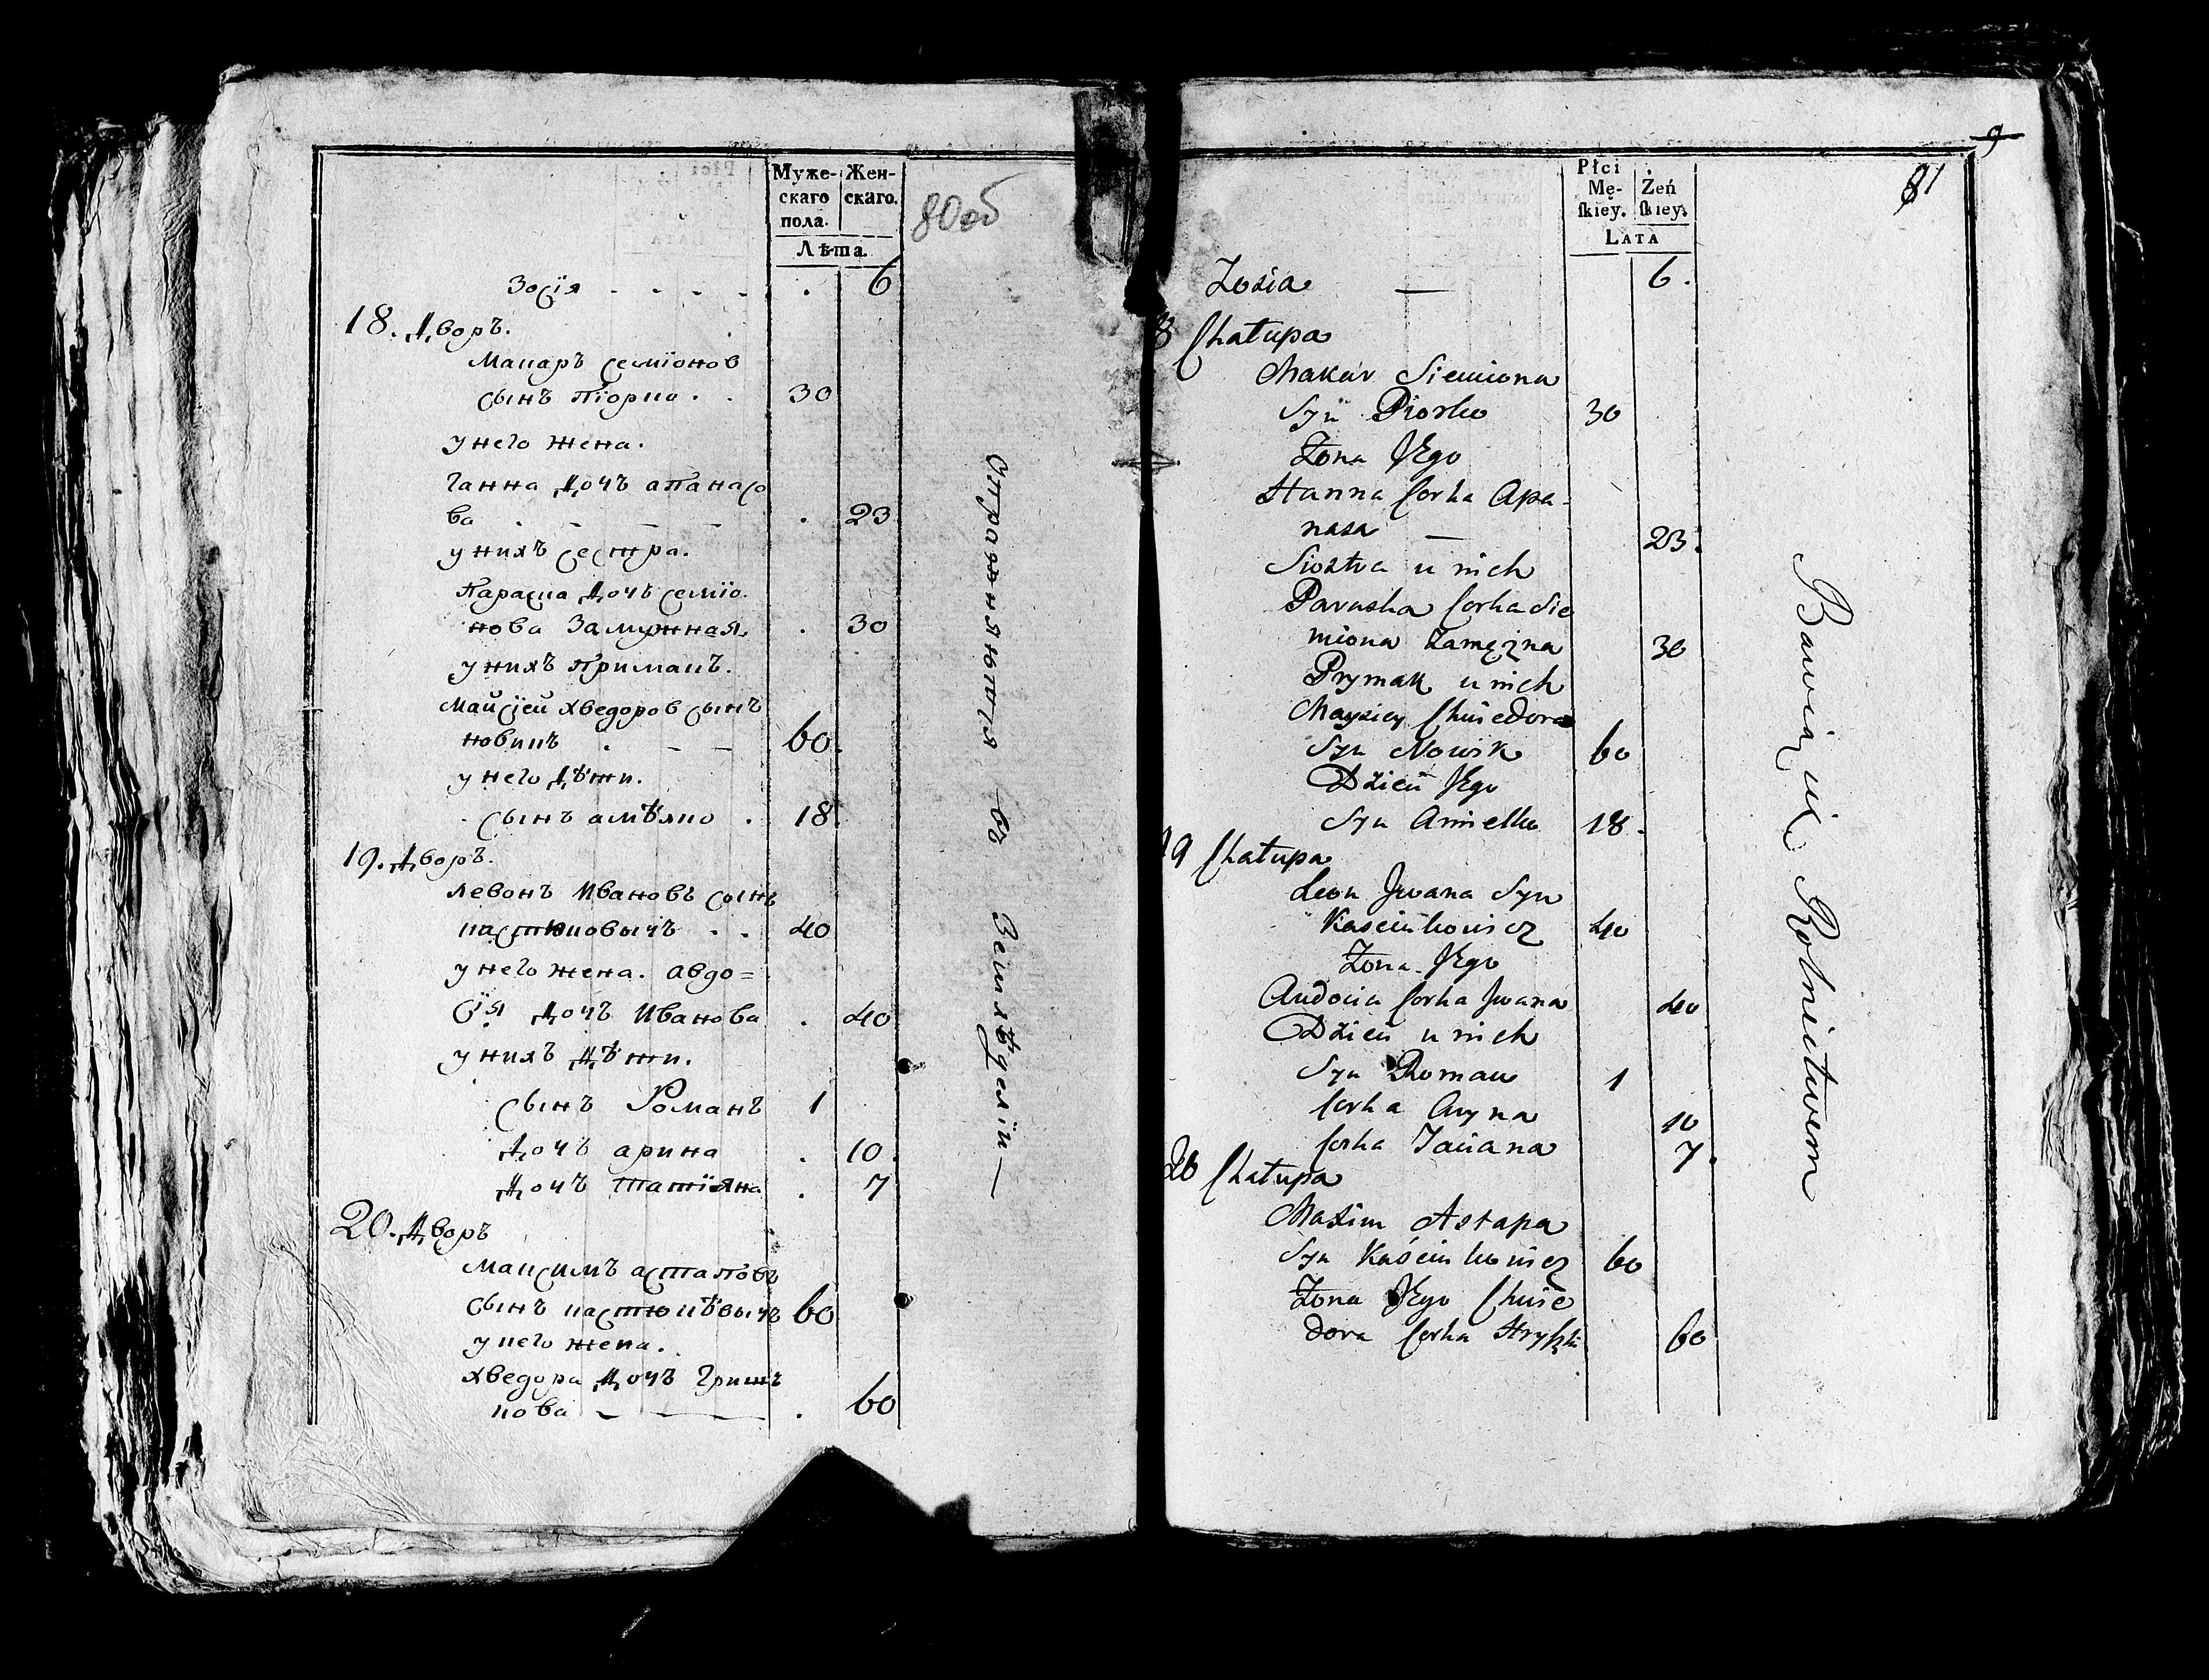 Муже-
скаго
пола.
Жен-
скаго.
Лѣта.
80об
Зосія 6
18. Дворъ.
Макаръ Семіонов
сынъ Піорко 30
у него жена.
Ганна дочъ апанасо
ва 23
у нихъ сестра.
Параска дочъ семіо
нова Замужная 30
у нихъ примакъ.
Майсіей хведоров сынъ
новикъ 60
у него дѣти.
сынъ амѣлко 18
19. Дворъ.
левонъ Ивановъ сынъ
кастюковычъ 40
у него жена. авдо=
сія дочъ Иванова 40
у нихъ дѣти.
сынъ Романъ 1
дочъ арина 10
дочъ татіяна 7
20. Дворъ
максимъ астаповъ
сынъ кастюкѣвычъ 60
у него жена.
хведора дочъ Гриш
кова 60
Упражняются въ Земледѣліи —
9
81
Płci
Mę-
skiey.
Żeń
skiey.
Lata
Zosia — 6.
8 Chałupa
Makar Siemiona
Syn Piorko 30
Żona Jego
Hanna Corka Apa-
nasa — 23.
Siostra u nich
Paraska Corka Sie
miona Zamężna 30
Prymak u nich
Maysiey Chwiedora
Syn Nowik 60
Dzieci Jego
Syn Amielko 18.
19 Chałupa
Leon Jwana Syn
Kasciukowicz 40
Żona Jego
Audocia Corka Jwana 40
Dzieci u nich
Syn Roman 1
Corka Aryna 10
Corka Taciana 7.
20 Chałupa
Maxim Astapa
Syn Kaściukowicz 60
Żona Jego Chwie
dora Corka Hryszki 60
Bawią się Rolnictwem